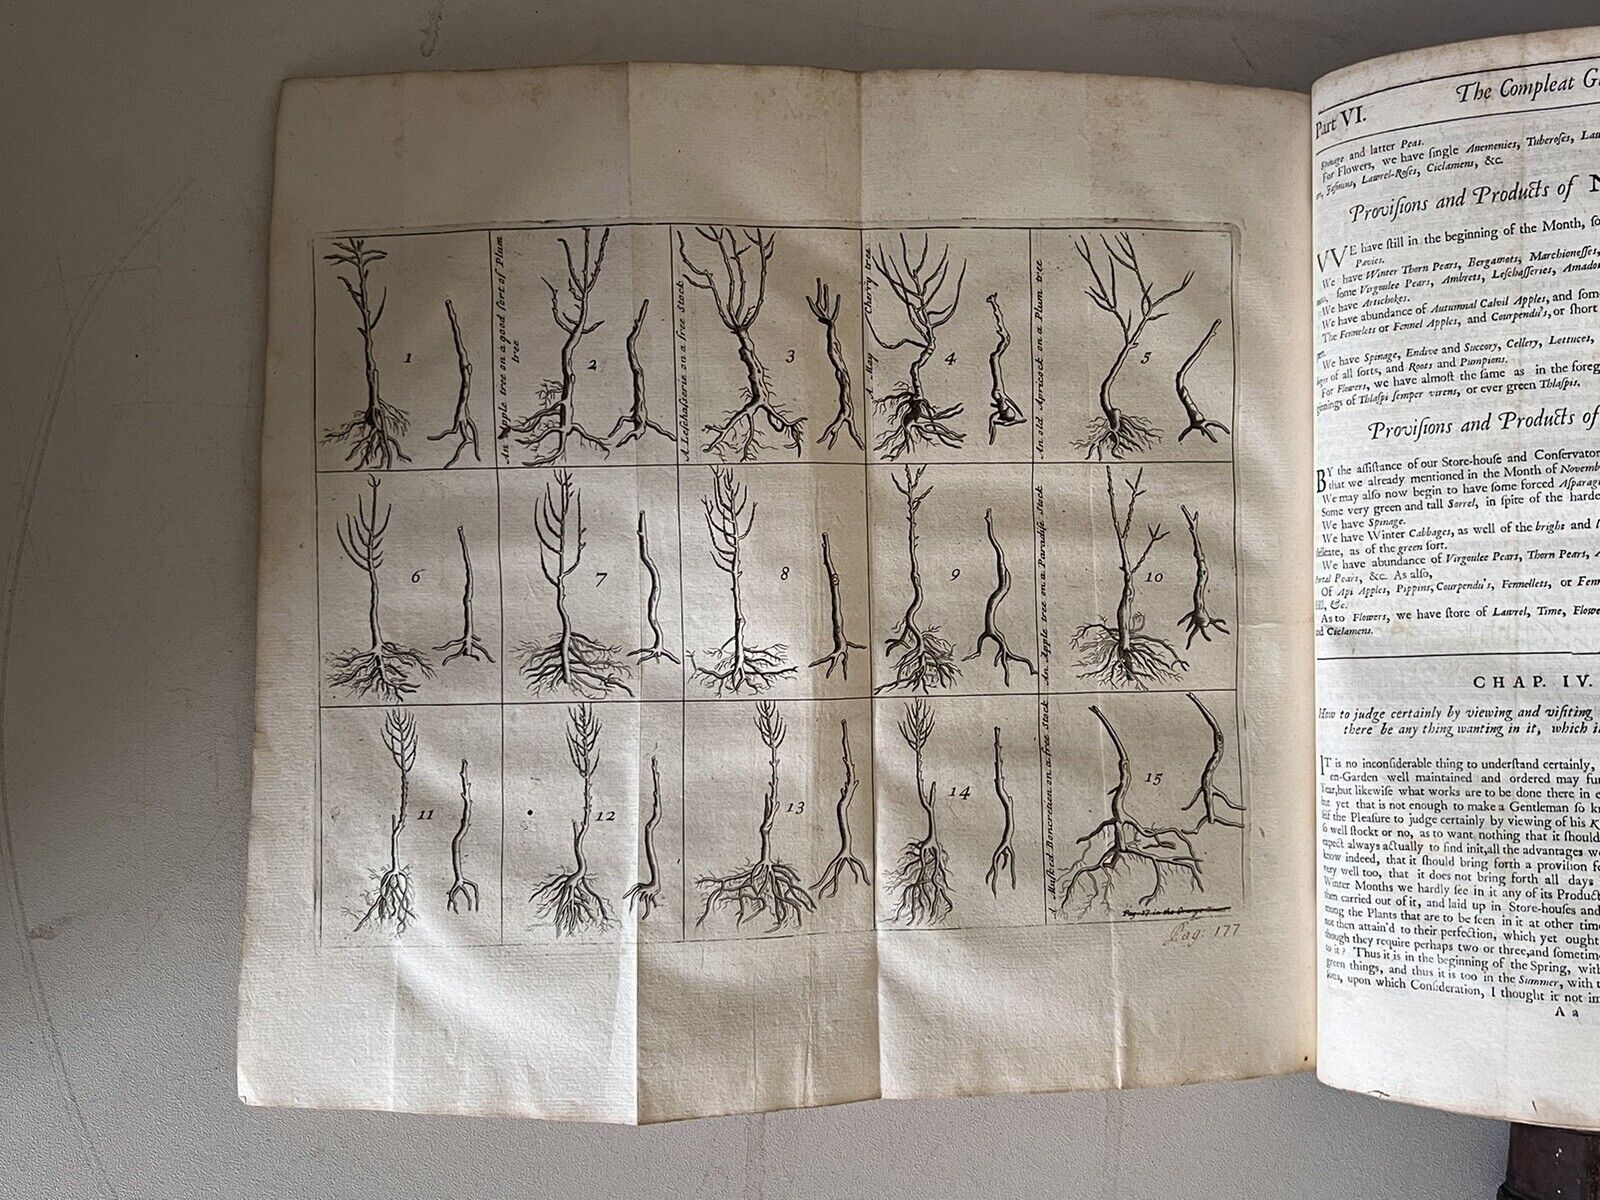 1
An Apple tree on a good sort of Plum
tree
2
A Leschasserie on a free Stock
3
A May Cherry tree
4
An old Apricock on a Plum tree
5
6
7
8
9
An Apple tree on a Paradise stock
10
11
12
13
14
A Musked Boncretien on a free Stock
15
Pag. 177
The Compleat G
Part VI.
and latter Peas.
For Flowers, we have ſingle Anemonies, Tuberoſes, Lau
Jaſmins, Lawrel-Roſes, Ciclamens, &c.
Proviſions and Products of N
WE have ſtill in the beginning of the Month, ſo
Pavies.
We have Winter Thorn Pears, Bergamots, Marchioneſſes,
ſome Virgoulee Pears, Ambrets, Leſchaſſeries, Amadot
We have Artichokes.
We have abundance of Autumnal Calvil Apples, and ſom
The Fennelets or Fennel Apples, and Courpendu's, or ſhort
We have Spinage, Endive and Succory, Cellery, Lettuces,
of all ſorts, and Roots and Pumpions.
For Flowers, we have almoſt the ſame as in the foreg
ginnings of Thlaſpi ſemper virens, or ever green Thlaſpis.
Proviſions and Products of
BY the aſſiſtance of our Store-houſe and Conſervator
that we already mentioned in the Month of Novemb
We may alſo now begin to have ſome forced Aſparag
Some very green and tall Sorrel, in ſpite of the harde
We have Spinage.
We have Winter Cabbages, as well of the bright and l
delicate, as of the green ſort.
We have abundance of Virgoulee Pears, Thorn Pears, A
Pears, &c. As alſo,
Of Api Apples, Pippins, Courpendu's, Fennellets, or Fenn
&c.
As to Flowers, we have ſtore of Lawrel, Time, Flowe
nd Ciclamens.
CHAP. IV.
How to judge certainly by viewing and viſiting
there be any thing wanting in it, which i
IT is no inconſiderable thing to underſtand certainly,
en-Garden well maintained and ordered may fur
Year, but likewiſe what works are to be done there in e
but yet that is not enough to make a Gentleman ſo k
ſelf the Pleaſure to judge certainly by viewing of his K
ſo well ſtockt or no, as to want nothing that it ſhould
expect always actually to find in it, all the advantages w
know indeed, that it ſhould bring forth a proviſion f
very well too, that it does not bring forth all days
Winter Months we hardly ſee in it any of its Product
then carried out of it, and laid up in Store-houſes and
among the Plants that are to be ſeen in it at other time
not then attain'd to their perfection, which yet ought
though they require perhaps two or three, and ſometim
to it? Thus it is in the beginning of the Spring, with
green things, and thus it is too in the Summer, with t
lons, upon which Conſideration, I thought it not im
A a